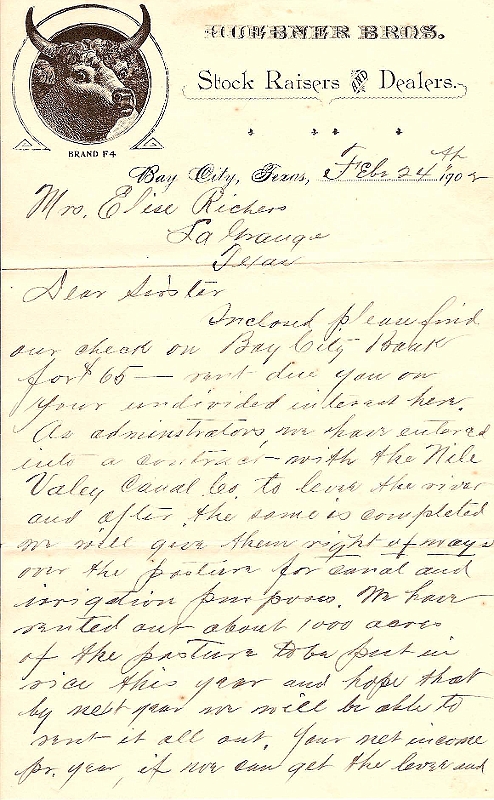 HUEBNER BROS.
Stock Raisers AND Dealers.
BRAND F4
Bay City, Texas, Feb 24th 1902
Mrs, Elise Richers
La Grange
Texas
Dear Sister
Inclosed please find
our check on Bay City Bank
for $65— rent due you on
your undivided interest here.
As adminstrators, we have entered
into a contract with the Nile
Valey Canal Co, to levee the river
and after the same is completed
we will give them right of ways
over the pasture for canal and
irrigation purposes. We have
rented out about 1000 acres
of the pasture to be put in
rice this year and hope that
by next year we will be able to
rent it all out. Your net income
pr. year, if we can get the levee and